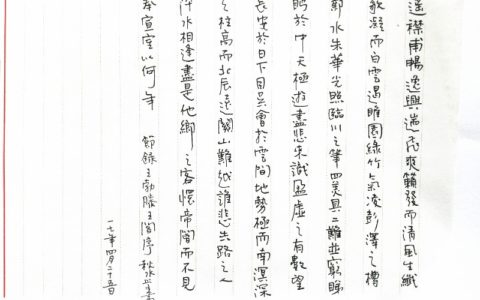 遥襟甫暢逸興遄飛爽籟發而清風生纖
歌凝而白雲遏睢園綠竹氣凌彭澤之樽
鄴水朱華光照臨川之筆四美具二難並窮睇
眄於中天極遊盡悲來識盈虛之有數望
長安於日下目吳會於雲間地勢極而南溟深
天柱高而北辰遠關山難越誰悲失路之人
萍水相逢盡是他鄉之客懷帝閽而不見
奉宣室以何年 節錄王勃滕王閣序
一七年四月二十五日